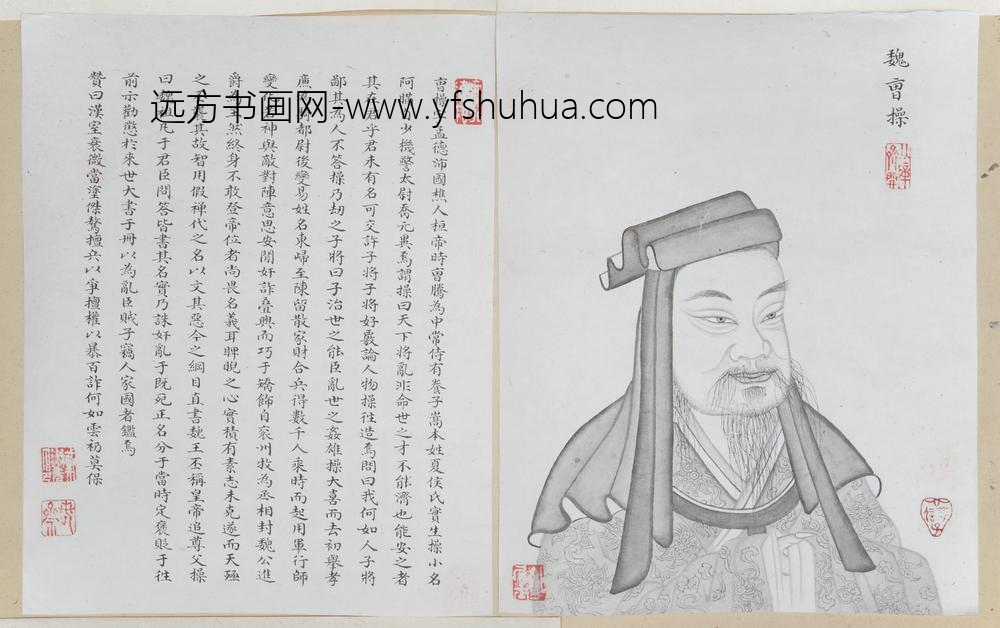 魏曺操
曺操字孟德沛國樵人桓帝時曺騰為中常侍有養子嵩本姓夏侯氏實生操小名
阿瞞少機警太尉喬元異焉謂操曰天下將亂非命世之才不能濟也能安之者
其在君乎君未有名可交許子將子將好覈論人物操往造焉問曰我何如人子將
鄙其為人不答操乃劫之子將曰子治世之能臣亂世之姦雄操大喜而去初舉孝
廉為騎都尉後變易姓名東歸至陳留散家財合兵得數千人乘時而起用軍行師
變化若神與敵對陣意思安閒奸詐叠興而巧于矯飾自兗州牧為丞相封魏公進
爵為王然終身不敢登帝位者尚畏名義耳睥睨之心實積有素志未克遂而天殛
之襲其故智用假禪代之名以文其惡今之綱目直書魏王丕稱皇帝追尊父操
曰魏祖凡于君臣問答皆書其名實乃誅奸亂于既死正名分于當時定褒貶于往
前示勸懲於來世大書于冊以為亂臣賊子竊人家國者鑑焉
贊曰漢室衰微當塗傑驁擅兵以寧擅權以暴百詐何如雲初莫保
远方书画网-www.yfshuhua.com